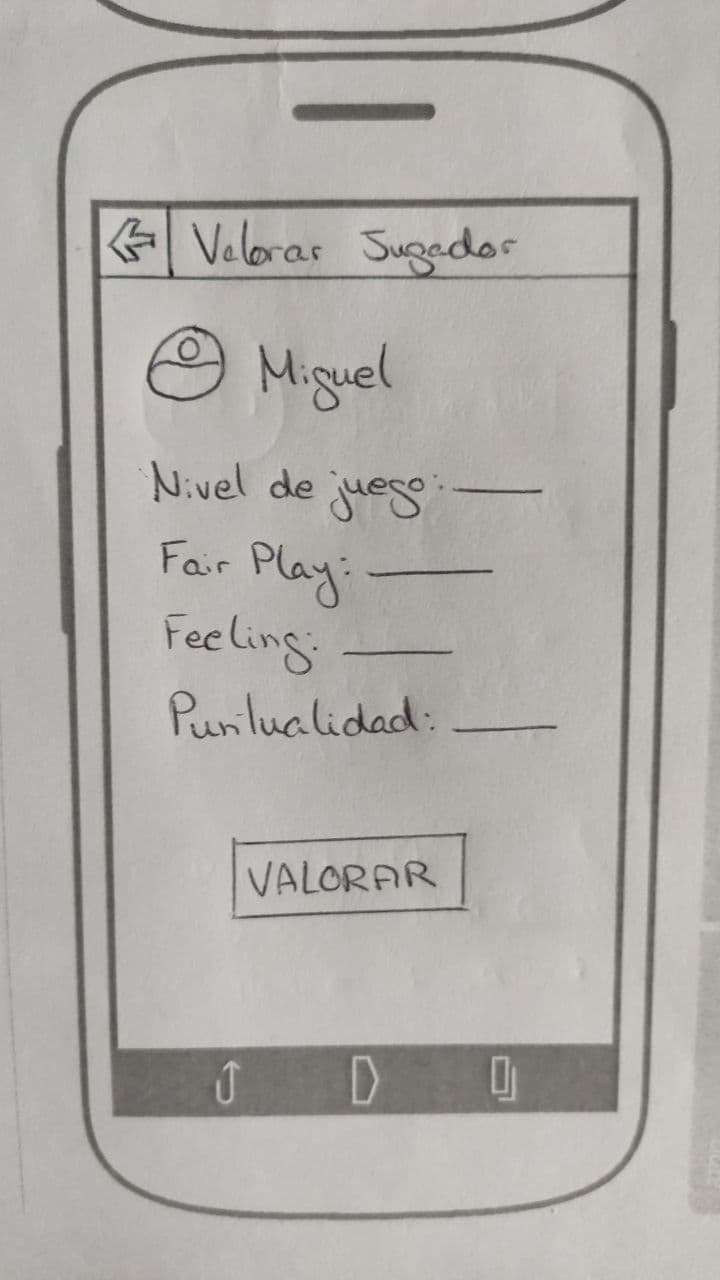 Valorar Jugador
Miguel
Nivel de juego:
Fair Play:
Feeling:
Puntualidad:
VALORAR